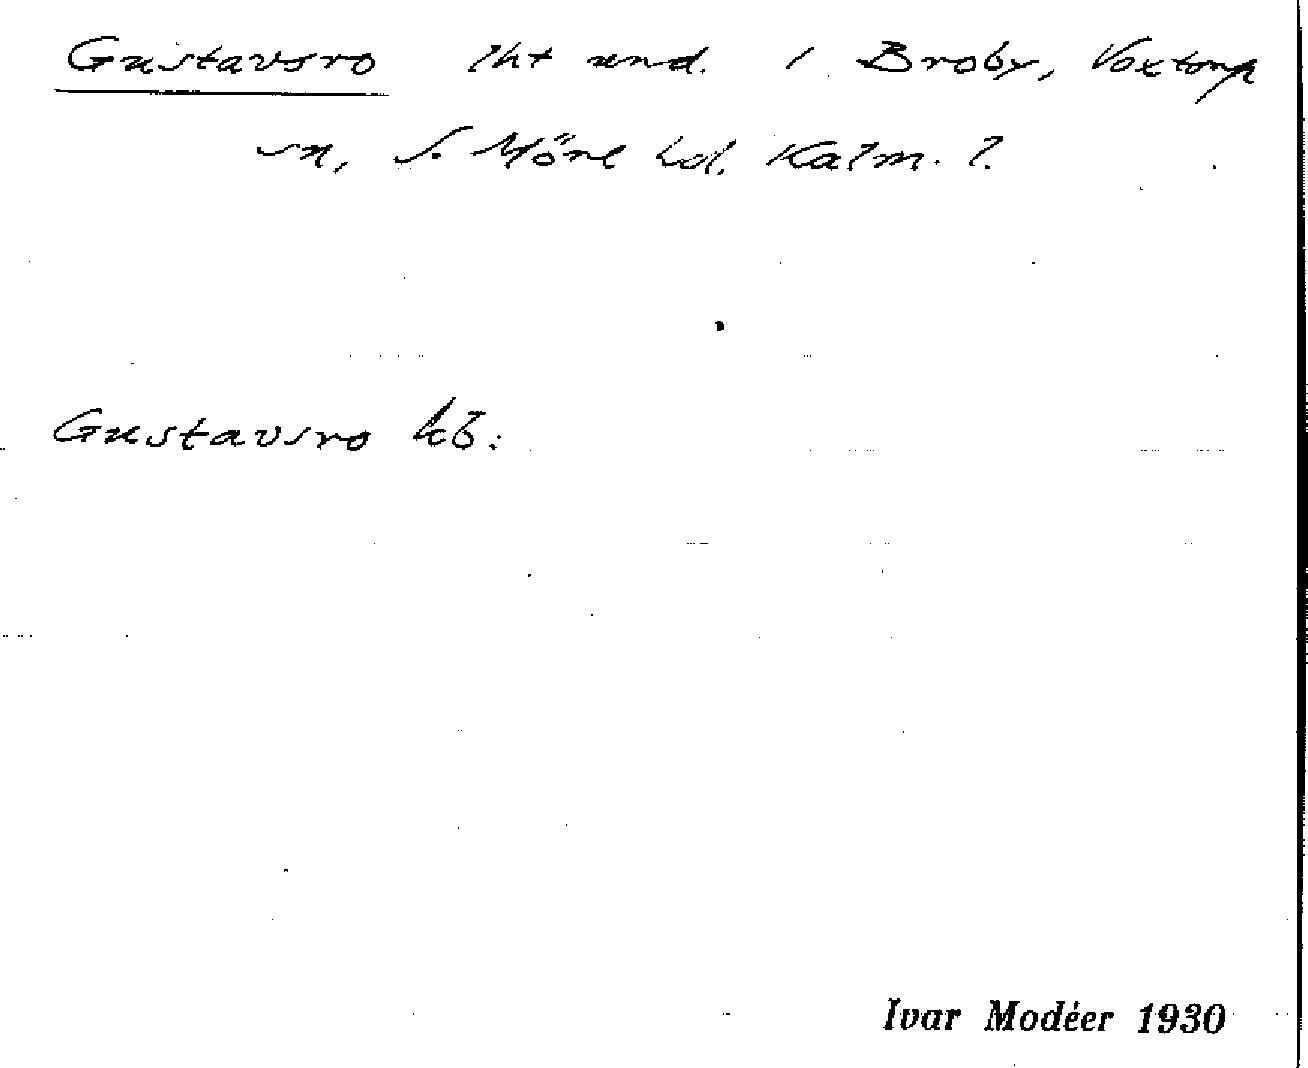 Gustavsro lht und. 1 Broby, Voxtorp
sn, S. Möre hd. Kalm. l.
Gustavsro kb:
Ivar Modéer 1930